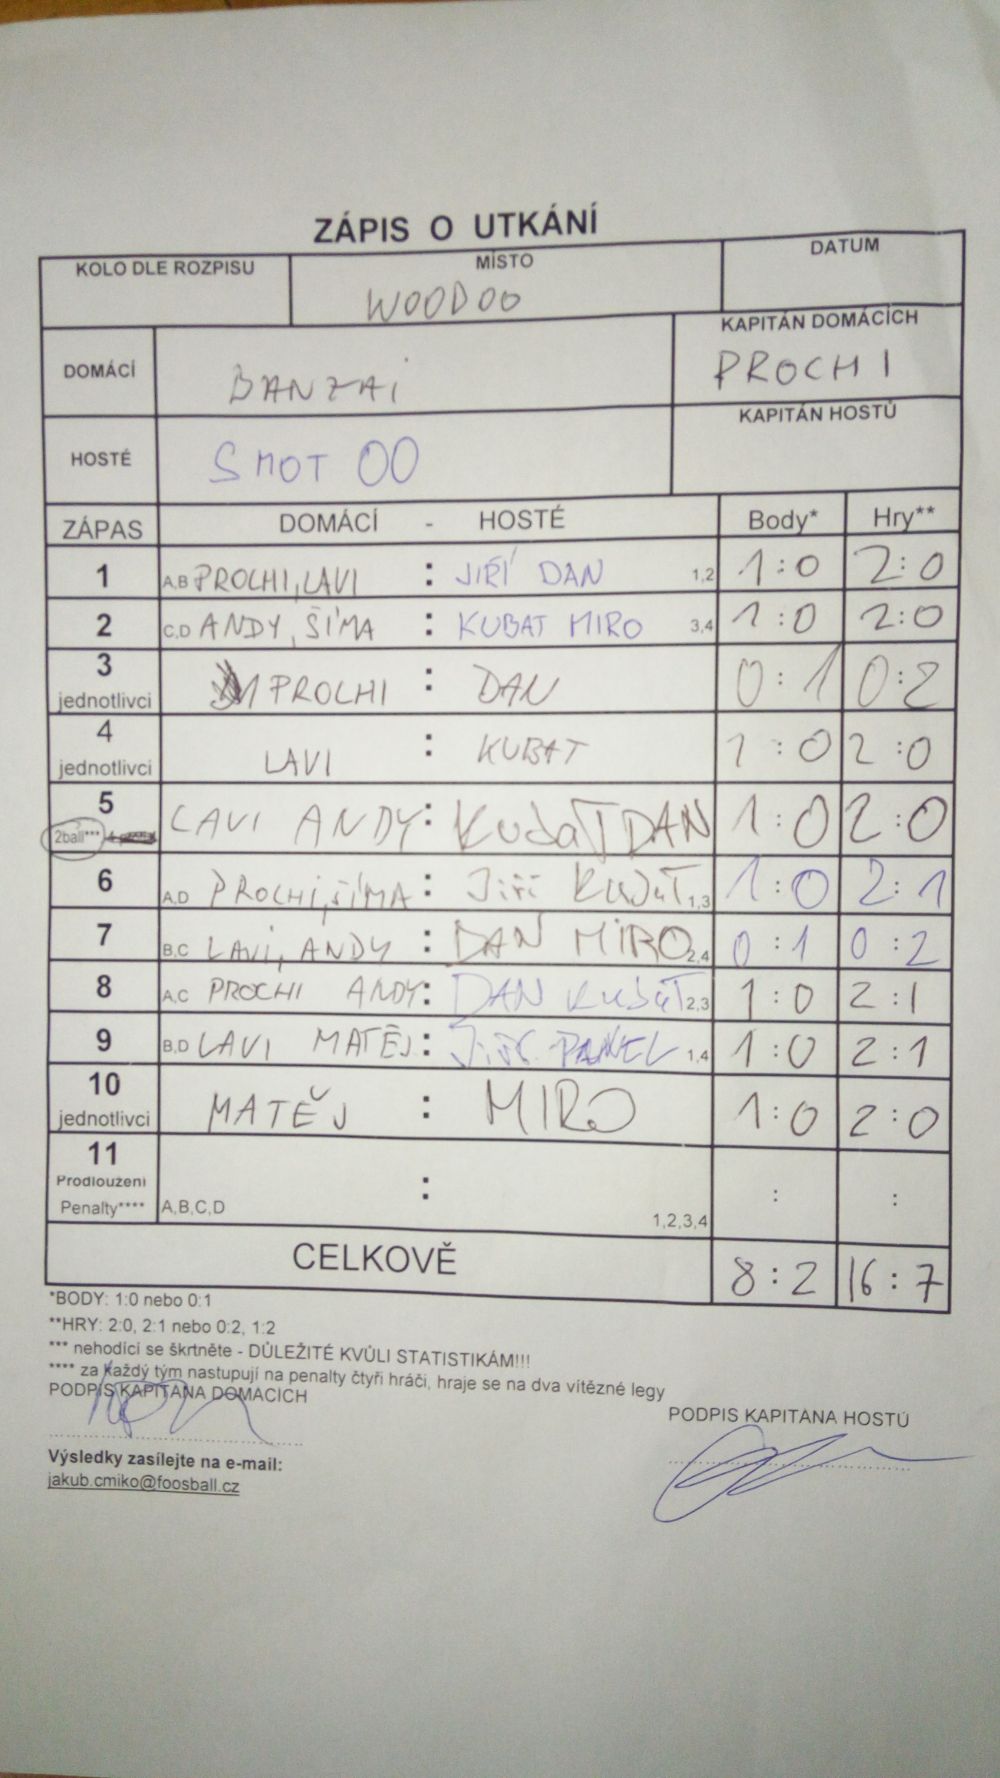 ZÁPIS O UTKÁNÍ
KOLO DLE ROZPISU MÍSTO DATUM
WOODOO
DOMÁCÍ BANZAI KAPITÁN DOMÁCÍCH
PROCHI
HOSTÉ SMOT OO KAPITÁN HOSTŮ
ZÁPAS DOMÁCÍ - HOSTÉ Body* Hry**
1 A,B PROCHI, LAVI : JIŘÍ DAN 1,2 1:0 2:0
2 C,D ANDY, ŠÍMA : KUBAT MIRO 3,4 1:0 2:0
3 jednotlivci PROCHI : DAN 0:1 0:2
4 jednotlivci LAVI : KUBAT 1:0 2:0
5 2ball*** LAVI ANDY : KUBAT DAN 1:0 2:0
6 A,D PROCHI, ŠÍMA : Jiří KUBAT 1,3 1:0 2:1
7 B,C LAVI, ANDY : DAN MIRO 2,4 0:1 0:2
8 A,C PROCHI ANDY : DAN KUBAT 2,3 1:0 2:1
9 B,D LAVI MATĚJ : JIŘÍ PAVEL 1,4 1:0 2:1
10 jednotlivci MATĚJ : MIRO 1:0 2:0
11 Prodloužení Penalty**** A,B,C,D : 1,2,3,4 : :
CELKOVĚ 8:2 16:7
*BODY: 1:0 nebo 0:1
**HRY: 2:0, 2:1 nebo 0:2, 1:2
*** nehodící se škrtněte - DŮLEŽITÉ KVŮLI STATISTIKÁM!!!
**** za každý tým nastupují na penalty čtyři hráči, hraje se na dva vítězné legy
PODPIS KAPITÁNA DOMÁCÍCH
PODPIS KAPITÁNA HOSTŮ
Výsledky zasílejte na e-mail:
jakub.cmiko@foosball.cz